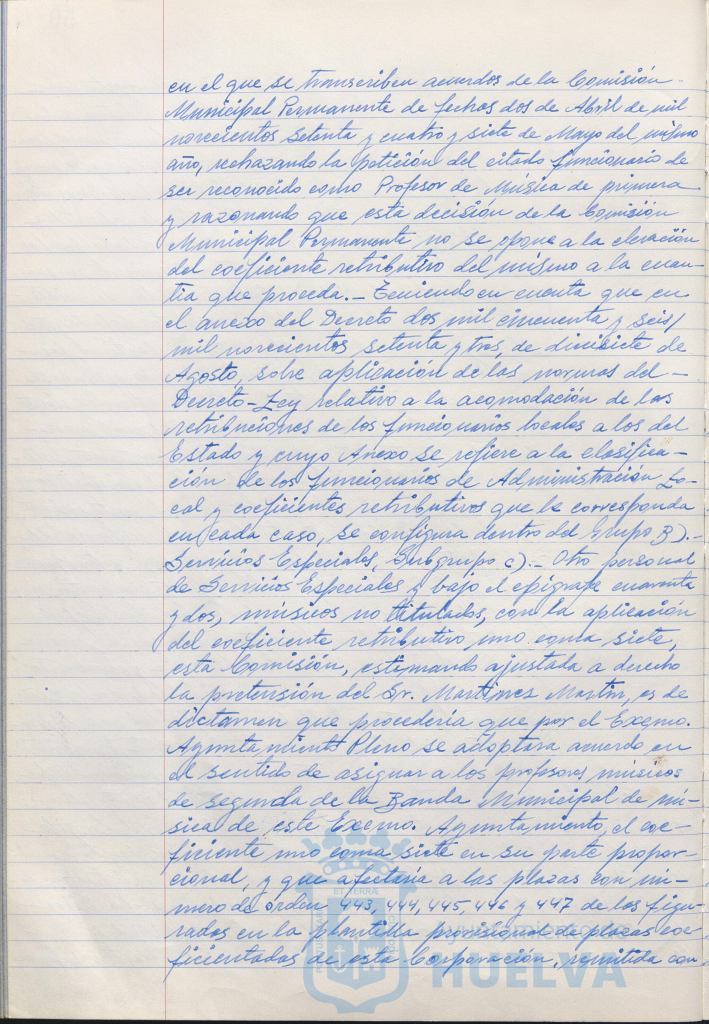 en el que se transcriben acuerdos de la Comisión
Municipal Permanente de fechas dos de Abril de mil
novecientos setenta y cuatro y siete de Mayo del mismo
año, rechazando la petición del citado funcionario de
ser reconocido como Profesor de Música de primera
y razonando que esta decisión de la Comisión
Municipal Permanente no se opone a la elevación
del coeficiente retributivo del mismo a la cuan-
tia que proceda.- Teniendo en cuenta que en
el anexo del Decreto dos mil cincuenta y seis/
mil novecientos setenta y tres, de diecisiete de
Agosto, sobre aplicación de las normas del -
Decreto-Ley relativo a la acomodación de las
retribuciones de los funcionarios locales a los del
Estado y cuyo Anexo se refiere a la clasifica-
ción de los funcionarios de Administración Lo-
cal y coeficientes retributivos que le corresponda
en cada caso, se configura dentro del Grupo B).-
Servicios Especiales, Subgrupo c).- Otro personal
de Servicios Especiales y bajo el epígrafe cuarenta
y dos, músicos no titulados, con la aplicación
del coeficiente retributivo uno coma siete,
esta Comisión, estimando ajustada a derecho
la pretensión del Sr. Martinez Martín, es de
dictamen que procedería que por el Excmo.
Ayuntamiento Pleno se adoptara acuerdo en
el sentido de asignar a los profesores músicos
de segunda de la Banda Municipal de mú-
sica de este Excmo. Ayuntamiento, el coe-
ficiente uno coma siete en su parte propor-
cional, y que afectaría a las plazas con nú-
mero de orden 443, 444, 445, 446 y 447 de las figu-
radas en la plantilla provisional de plazas coe-
ficientadas de esta Corporación, remitida con
HUELVA